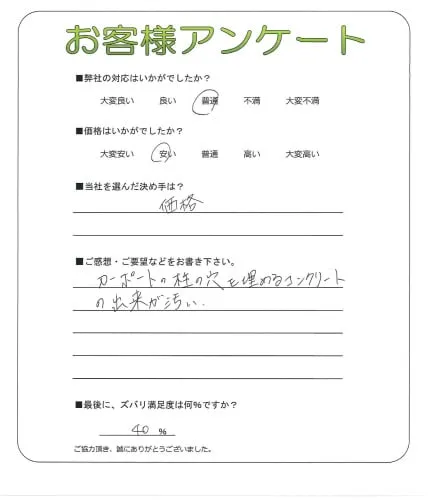 お客様アンケート
■弊社の対応はいかがでしたか？
大変良い 良い 普通 不満 大変不満
■価格はいかがでしたか？
大変安い 安い 普通 高い 大変高い
■当社を選んだ決め手は？
価格
■ご感想・ご要望などをお書き下さい。
カーポートの柱の穴を埋めるコンクリート
の出来が汚い.
■最後に、ズバリ満足度は何％ですか？
40 ％
ご協力頂き、誠にありがとうございました。